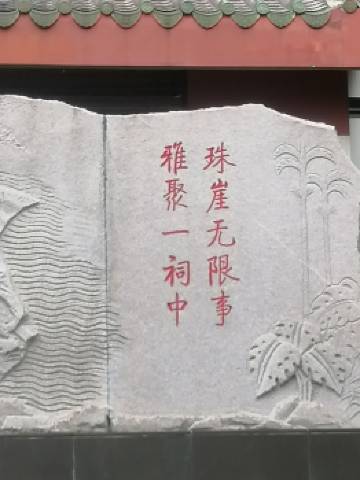 珠崖无限事
雅聚一祠中